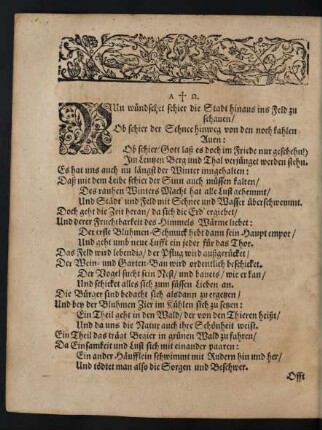 A ✝ Ω.
NUn wündschet schier die Stadt hinaus ins Feld zu
schauen/
Ob schier der Schnee hinweg von den noch kahlen
Auen:
Ob schier/ Gott laß es doch im Friede nur geschehn/
Im Lentzen Berg und Thal verjünget werden stehn.
Es hat uns auch nu längst der Winter inngehalten:
Daß mit dem Leibe schier der Sinn auch müssen kalten/
Des rauhen Winters Macht hat alle Lust gehemmt/
Und Städt und Feld mit Schnee und Wasser überschwemmt.
Doch geht die Zeit heran/ da sich die Erd' ergiebet/
Und derer Fruchtbarkeit des Himmels Wärme liebet:
Der erste Bluhmen-Schmuck hebt dann sein Haupt empor/
Und geht umb neue Lufft ein jeder für das Thor.
Das Feld wird lebendig/ der Pflug wird außgerücket/
Der Wein- und Garten-Bau wird ordentlich beschicket.
Der Vogel sucht sein Nest/ und bauets/ wie er kan/
Und schicket alles sich zum süssen Lieben an.
Die Bürger sind bedacht sich alsdann zu ergetzen/
Und bey der Bluhmen Zier im Kühlen sich zu setzen:
Ein Theil geht in den Wald/ der von den Thieren heißt/
Und da uns die Natur auch ihr Schönheit weist.
Ein Theil das trägt Begier in grünen Wald zu fahren/
Da Einsamkeit und Lust sich mit einander paaren:
Ein ander Häufflein schwimmt mit Rudern hin und her/
Und tödtet man also die Sorgen und Beschwer.
Offt